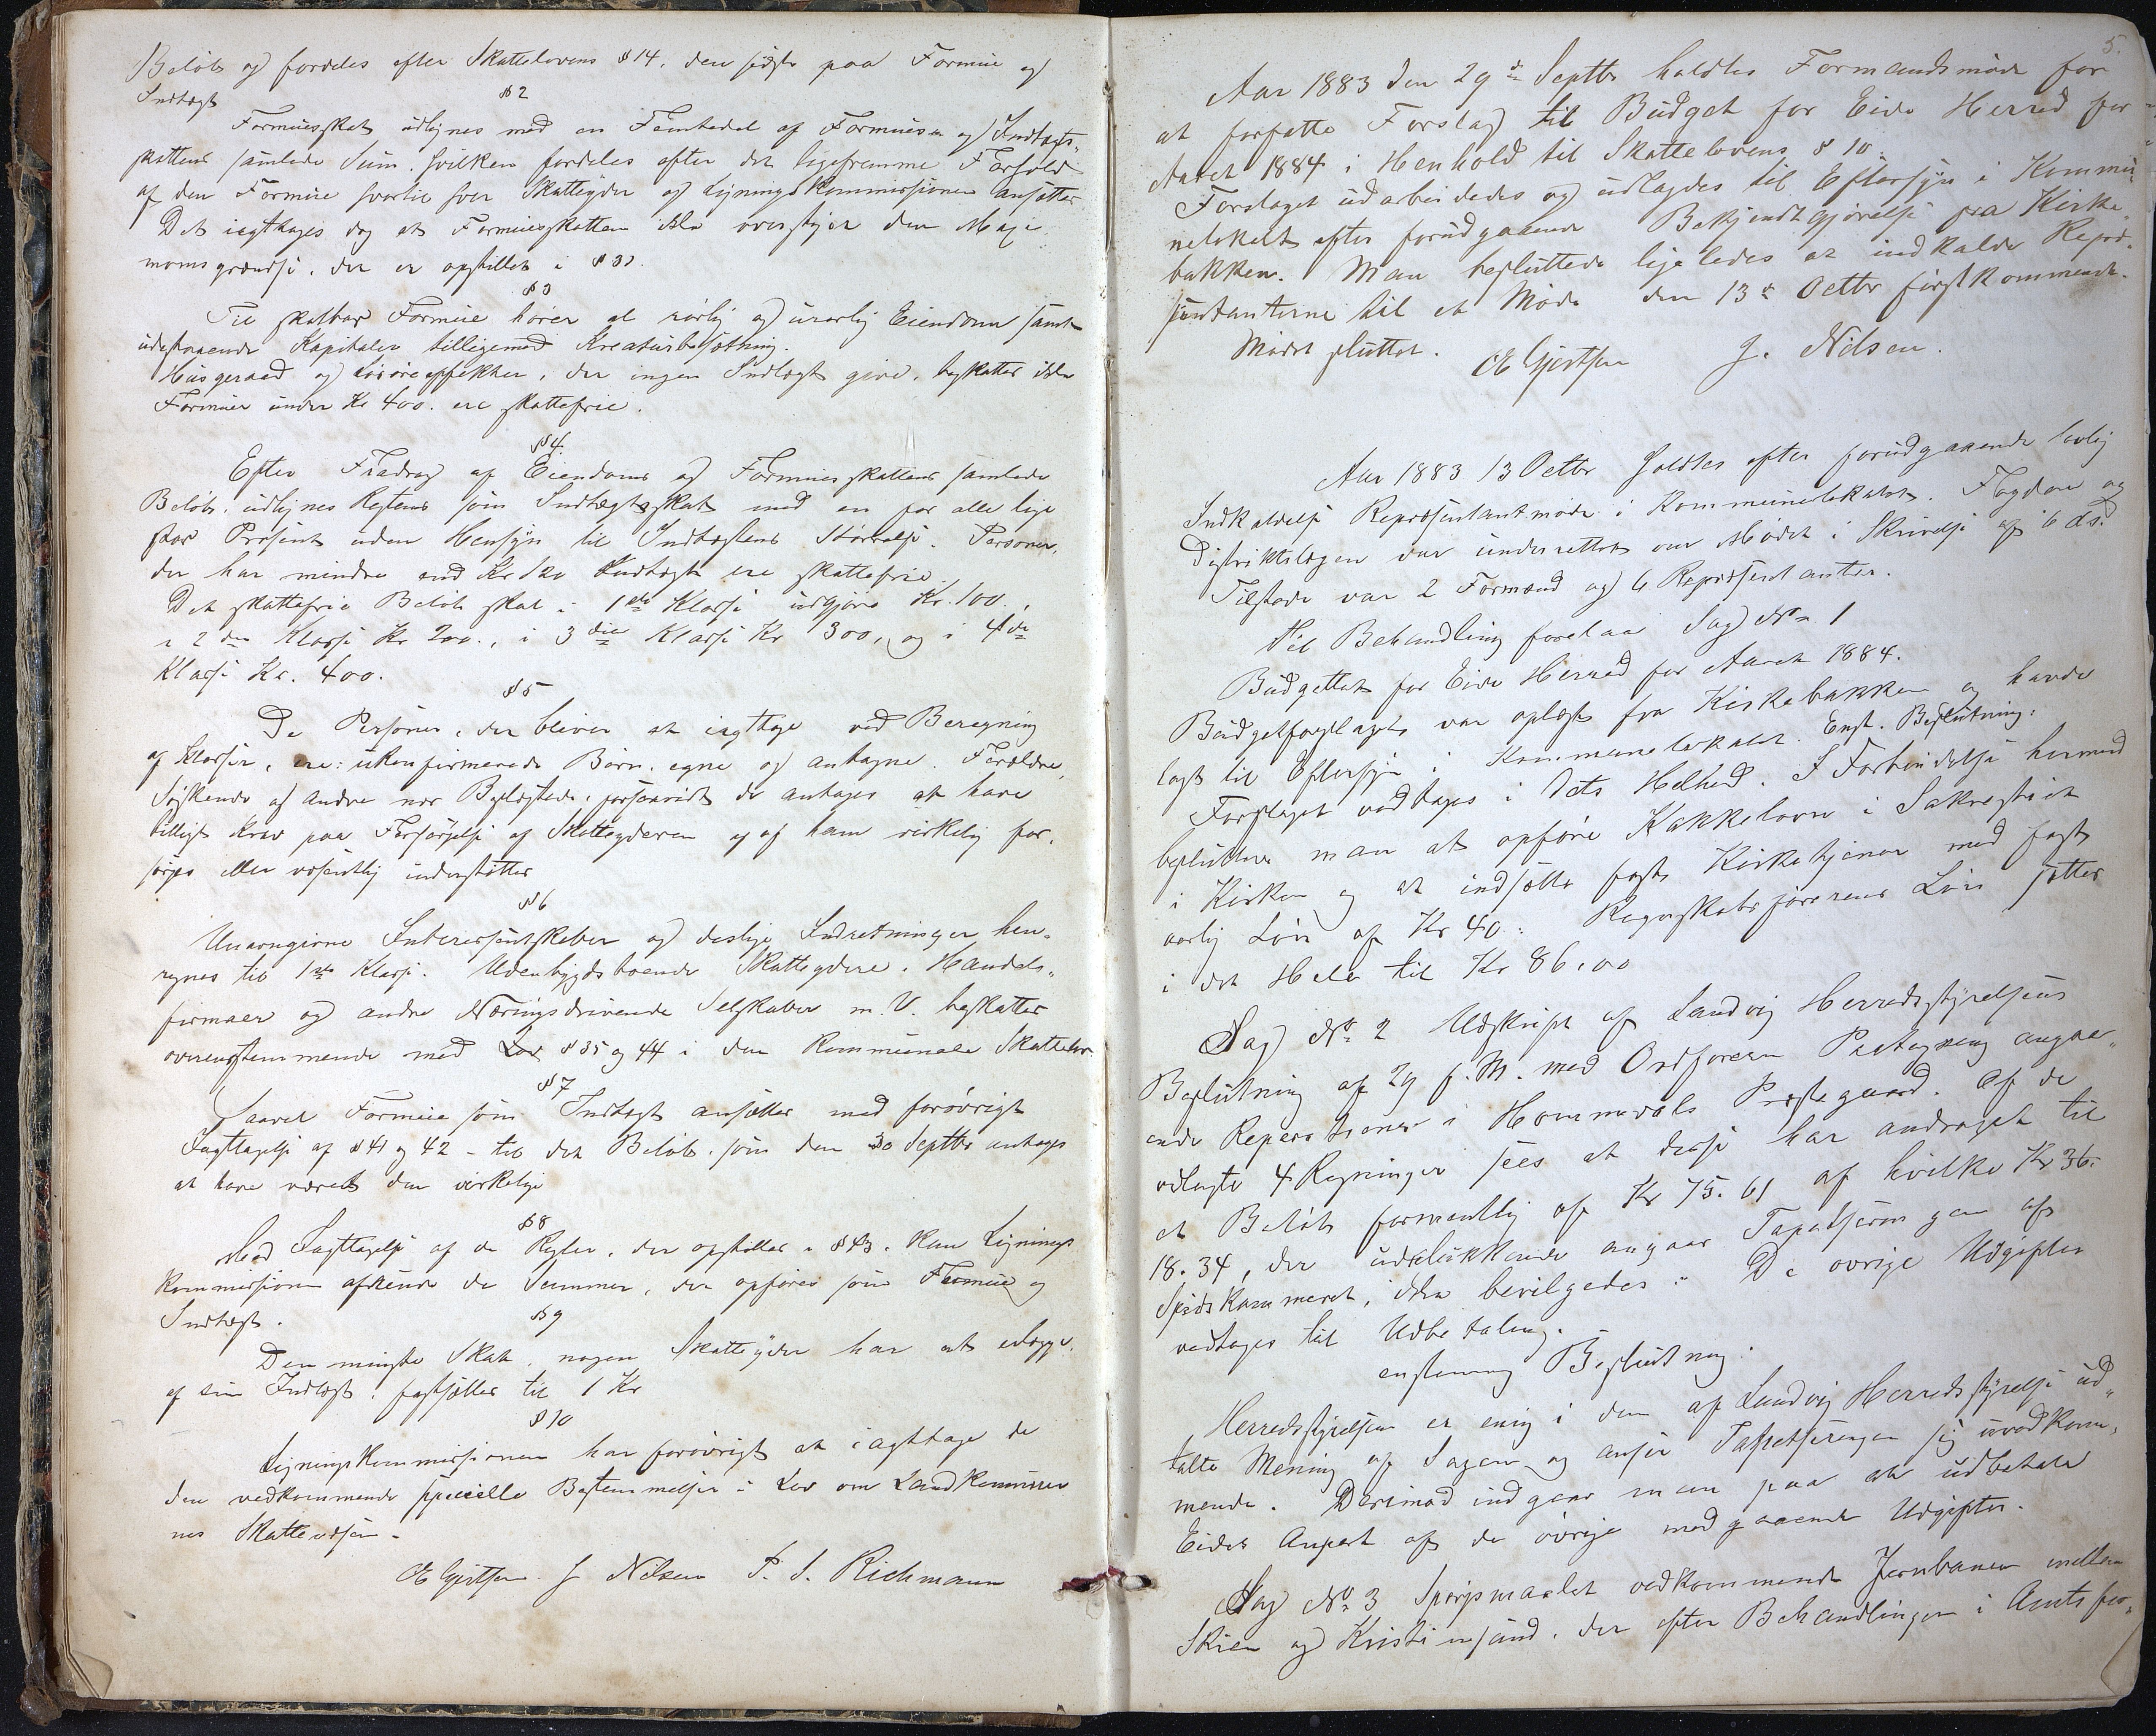 Beløb og fordeles efter Skattelovens § 14, den sidste paa Formue og
Indtægt
§ 2
Formuesskat udlignes med en Femtedel af Formues og Indtægts-
skattens samlede Sum, hvilken fordeles efter det ligefremme Forhold
af den Formue hvortil hver Skatteyder og Ligningskommissionen ansætter
Det iagttages dog at Formuesskatten ikke overstiger den Maxi-
mumsgrændse, der er opstillet i § 33.
§ 3
Til skatbar Formue hører al rørlig og urørlig Eiendom samt
udestaaende Kapitaler tilligemed Kreaturbesætning.
Husgeraad og Løsøreeffekter, der ingen Indtægt give, beskattes ikke
Formuer under Kr 400. ere skattefrie.
§ 4.
Efter Fradrag af Eiendoms og Formuesskattens samlede
Beløb, udlignes Restens som Indtægtsskat med en for alle lige
stor Prosent uden Hensyn til Indtægtens Størrelse. Personer,
der har mindre end Kr 120 Indtægt ere skattefrie.
Det skattefrie Beløb skal i 1ste Klasse udgjøre Kr. 100.,
i 2den Klasse Kr 200., i 3die Klasse Kr 300, og i 4de
Klasse Kr. 400.
§ 5
De Personer, der bliver at iagttage ved Beregning
af Klasser, ere: ukonfirmerede Børn, egne og antagne. Forældre,
Søskende og andre nær Beslægtede, forsaavidt de antages at have
billigt Krav paa Forsørgelse af Skatteyderen og af ham virkelig for-
sørges eller væsentlig understøttes
§ 6
Uuavngivne Interessentskaber og deslige Indretninger hen-
regnes til 1ste Klasse. Udenbygdsboende Skatteydere, Handels-
firmaer og andre Næringsdrivende Selskaber m. V. beskattes
overensstemmende med Lov § 35 og 44 i den kommunale Skattelov
§ 7
Saavel Formue som Indtægt ansættes med forøvrigt
Iagttagelse af § 41 og 42 - til det Beløb, som den 30 Septbr antages
at have været den virkelige
§ 8
Med Iagttagelse af de Regler, der opstilles i § 43, kan Lignings
kommissionen afrunde de Summer, der opføres som Formue og
Indtægt.
§ 9
Den mindste Skat, nogen Skatteyder har at udlægge
af sin Indtægt, fastsættes til 1 Kr
§ 10
Ligningskommissionen har forøvrigt at iagttage de
den vedkommende specielle Bestemmelser i Lov om Landkommuner
nes Skattevæsen.
O E Gjertsen J Nilsen P. S. Richmann
5.
Aar 1883 den 29de Septbr holdtes Formandsmøde for
at forfatte Forslag til Budget for Eide Herred for
Aaret 1884 i Henhold til Skattelovens § 10.
Forslaget udarbeidedes og udlagdes til Eftersyn i Kommu-
nelokalet efter forudgaaende Bekjendtgjørelse fra Kirke-
bakken. Man besluttede ligeledes at indkalde Repræ-
sentanterne til et Møde den 13de Octbr førstkommende.
Mødet sluttet. O E Gjertsen J. Nilsen.
Aar 1883 13 Octbr holdtes efter forudgaaende lovlig
Indkaldelse Repræsentantmøde i Kommunelokalet. Fogden og
Distriktslægen var underrettet om Mødet i Skrivelse af 6 ds.
Tilstede var 2 Formænd og 6 Repræsentanter.
Til Behandling forelaa Sag No 1
Budgettet for Eide Herred for Aaret 1884.
Budgetforslaget var oplæst fra Kirkebakken og havde
lagt til Eftersyn i Kommunelokalet. Enst. Beslutning:
Forslaget vedtages i dets Helhed. I Forbindelse hermed
beslutter man at opføre Kakkelovn i Sakrestiet
i Kirken og at indsætte fast Kirketjener med fast
aarlig Løn af Kr 40. Regnskabsførerens Løn sættes
i det Hele til Kr 86.00
Sag No 2 Udskrift af Landvig Herredsstyrelses
Beslutning af 29 f. M. med Ordførerens Paategning angaa-
ende Reperationer i Hommedals Præstegaard. Af de
vedlagte 4 Regninger sees at disse har andraget til
et Beløb formentlig af Kr 75.61 af hvilke Kr 36.
18.34, der udelukkende angaar Tapetseringen af
Spidskammeret, ikke bevilgedes. De øvrige Udgifter
vedtages til Udbetaling.
enstemmig Beslutning:
Herredsstyrelsen er enig i den af Landvig Herredsstyrelse ud-
talte Mening af Sagen og anser Tapetseringen sig uvedkom-
mende. Derimod indgaar man paa at udbetale
Eides Anpart af de øvrige medgaaende Udgifter.
Sag No 3 Spørgsmaalet vedkommende Jernbanen mellem
Skien og Kristiansand, der efter Behandlingen i Amtsfor-